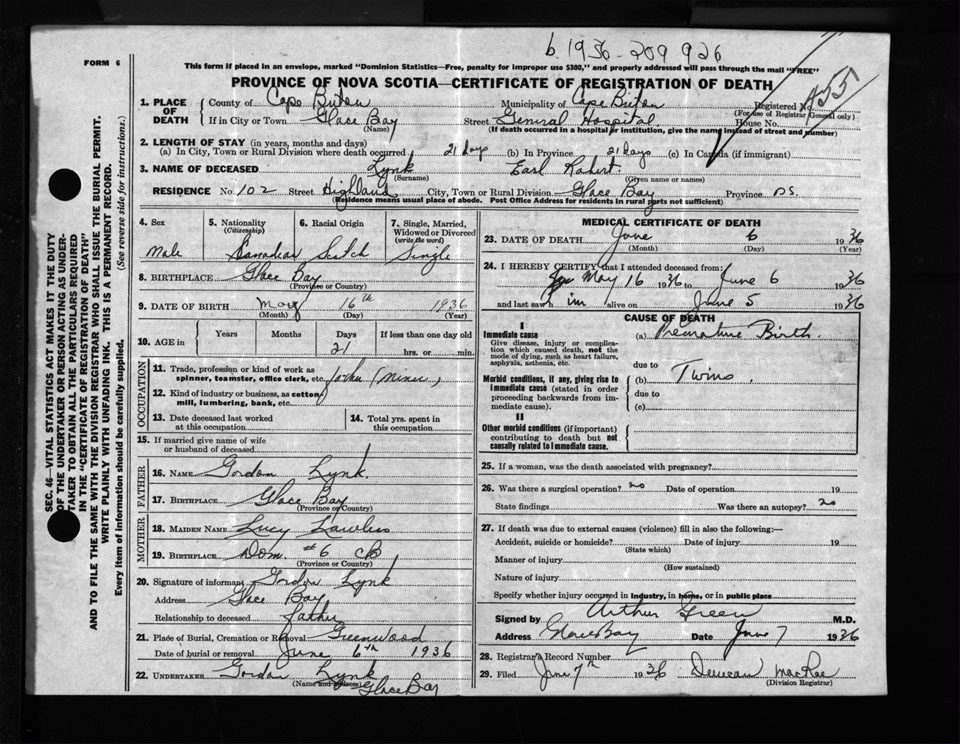 b 1936-209926
FORM 6
This form if placed in an envelope, marked "Dominion Statistics—Free, penalty for improper use $300," and properly addressed will pass through the mail "FREE"
PROVINCE OF NOVA SCOTIA—CERTIFICATE OF REGISTRATION OF DEATH
455
1. PLACE OF DEATH
County of Cape Breton Municipality of Cape Breton Registered No.
(For use of Registrar General only)
If in City or Town Glace Bay Street General Hospital. House No.
(Name) (If death occurred in a hospital or institution, give the name instead of street and number)
2. LENGTH OF STAY (in years, months and days)
(a) In City, Town or Rural Division where death occurred 21 days (b) In Province 21 days (c) In Canada (if immigrant)
3. NAME OF DECEASED Lynk Earl Robert.
(Surname) (Given name or names)
RESIDENCE No. 102 Street Highland City, Town or Rural Division Glace Bay Province NS.
(Residence means usual place of abode. Post Office Address for residents in rural parts not sufficient)
4. Sex 5. Nationality (Citizenship) 6. Racial Origin 7. Single, Married, Widowed or Divorced (write the word)
Male Canadian Scotch Single
8. BIRTHPLACE Glace Bay
(Province or Country)
9. DATE OF BIRTH May 16th 1936
(Month) (Day) (Year)
10. AGE in Years Months Days If less than one day old
21 hrs. or min.
OCCUPATION
11. Trade, profession or kind of work as spinner, teamster, office clerk, etc. (Miner)
12. Kind of industry or business, as cotton mill, lumbering, bank, etc.
13. Date deceased last worked at this occupation 14. Total yrs. spent in this occupation
15. If married give name of wife or husband of deceased
FATHER
16. NAME Gordon Lynk.
17. BIRTHPLACE Glace Bay
(Province or Country)
MOTHER
18. MAIDEN NAME Lucy Lawless
19. BIRTHPLACE Dom. #6 CB
(Province or Country)
20. Signature of informant Gordon Lynk
Address Glace Bay
Relationship to deceased father
21. Place of Burial, Cremation or Removal Greenwood
Date of burial or removal June 6th 1936
22. UNDERTAKER Gordon Lynk
(Name and address) Glace Bay
MEDICAL CERTIFICATE OF DEATH
23. DATE OF DEATH June 6 1936
(Month) (Day) (Year)
24. I HEREBY CERTIFY that I attended deceased from:
May 16 1936 to June 6 1936
and last saw h im alive on June 5 1936
CAUSE OF DEATH
I
Immediate cause (a) Premature Birth.
Give disease, injury or complication which caused death, not the mode of dying, such as heart failure, asphyxia, asthenia, etc.
due to
Morbid conditions, if any, giving rise to immediate cause (stated in order proceeding backwards from immediate cause).
(b) Twins.
due to
(c)
II
Other morbid conditions (if important) contributing to death but not causally related to immediate cause.
25. If a woman, was the death associated with pregnancy?
26. Was there a surgical operation? no Date of operation 19
State findings Was there an autopsy? no
27. If death was due to external causes (violence) fill in also the following:—
Accident, suicide or homicide? Date of injury 19
(State which)
Manner of injury
(How sustained)
Nature of injury
Specify whether injury occurred in industry, in home, or in public place
Signed by Arthur Green M.D.
Address Glace Bay Date June 7 1936
28. Registrar's Record Number
29. Filed June 7th 1936 Duncan MacRae
(Division Registrar)
SEC. 46—VITAL STATISTICS ACT MAKES IT THE DUTY
OF THE UNDERTAKER OR PERSON ACTING AS UNDER-
TAKER TO OBTAIN ALL THE PARTICULARS REQUIRED
IN THE "CERTIFICATE OF REGISTRATION OF DEATH"
AND TO FILE THE SAME WITH THE DIVISION REGISTRAR WHO SHALL ISSUE THE BURIAL PERMIT.
WRITE PLAINLY WITH UNFADING INK. THIS IS A PERMANENT RECORD.
Every item of information should be carefully supplied. (See reverse side for instructions.)